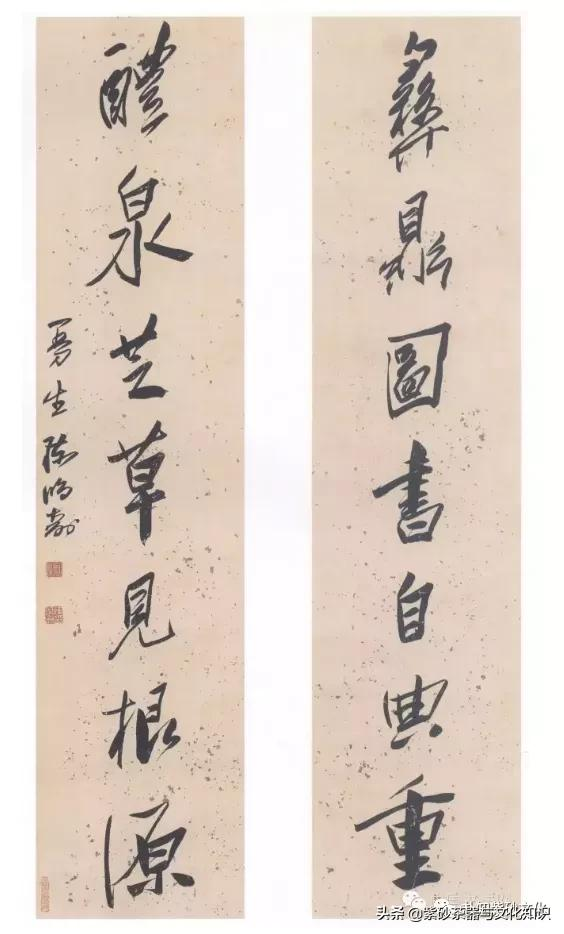 彝鼎圖書自典重
醴泉芝草見根源
曼生陳鴻壽
头条 @紫砂茶器与文化知识